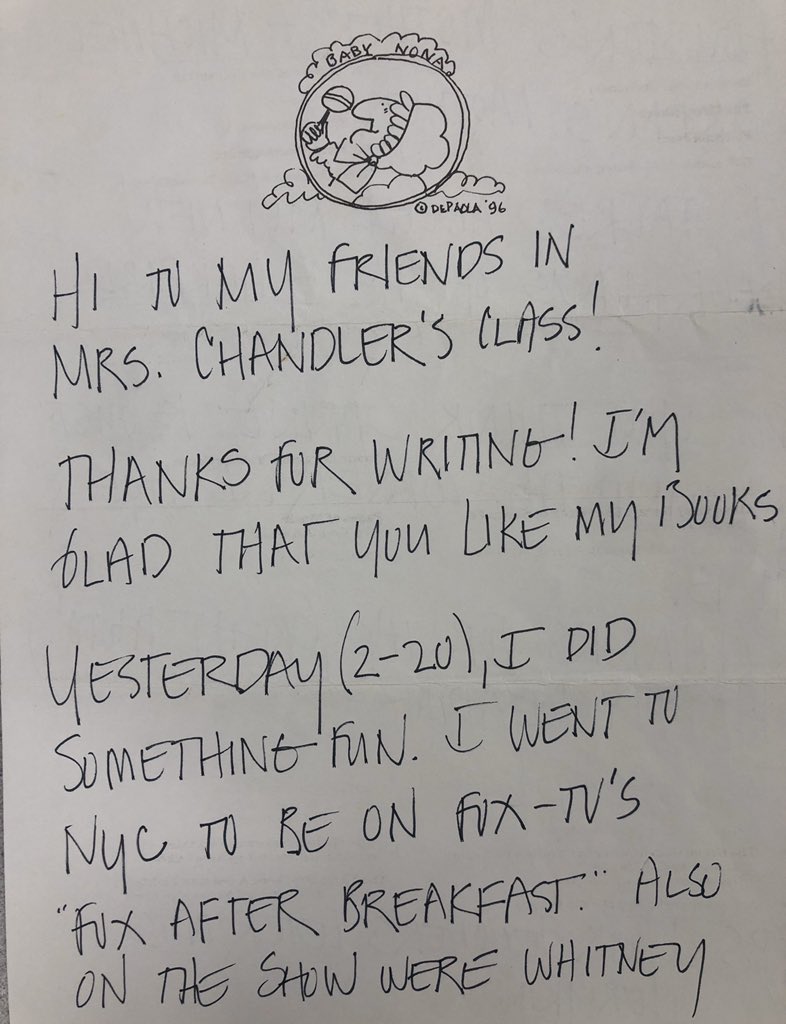 BABY NONA
© DEPAOLA '96
HI TO MY FRIENDS IN
MRS. CHANDLER'S CLASS!
THANKS FOR WRITING! I'M
GLAD THAT YOU LIKE MY BOOKS
YESTERDAY (2-20), I DID
SOMETHING FUN. I WENT TO
NYC TO BE ON FOX-TV'S
"FOX AFTER BREAKFAST." ALSO
ON THE SHOW WERE WHITNEY